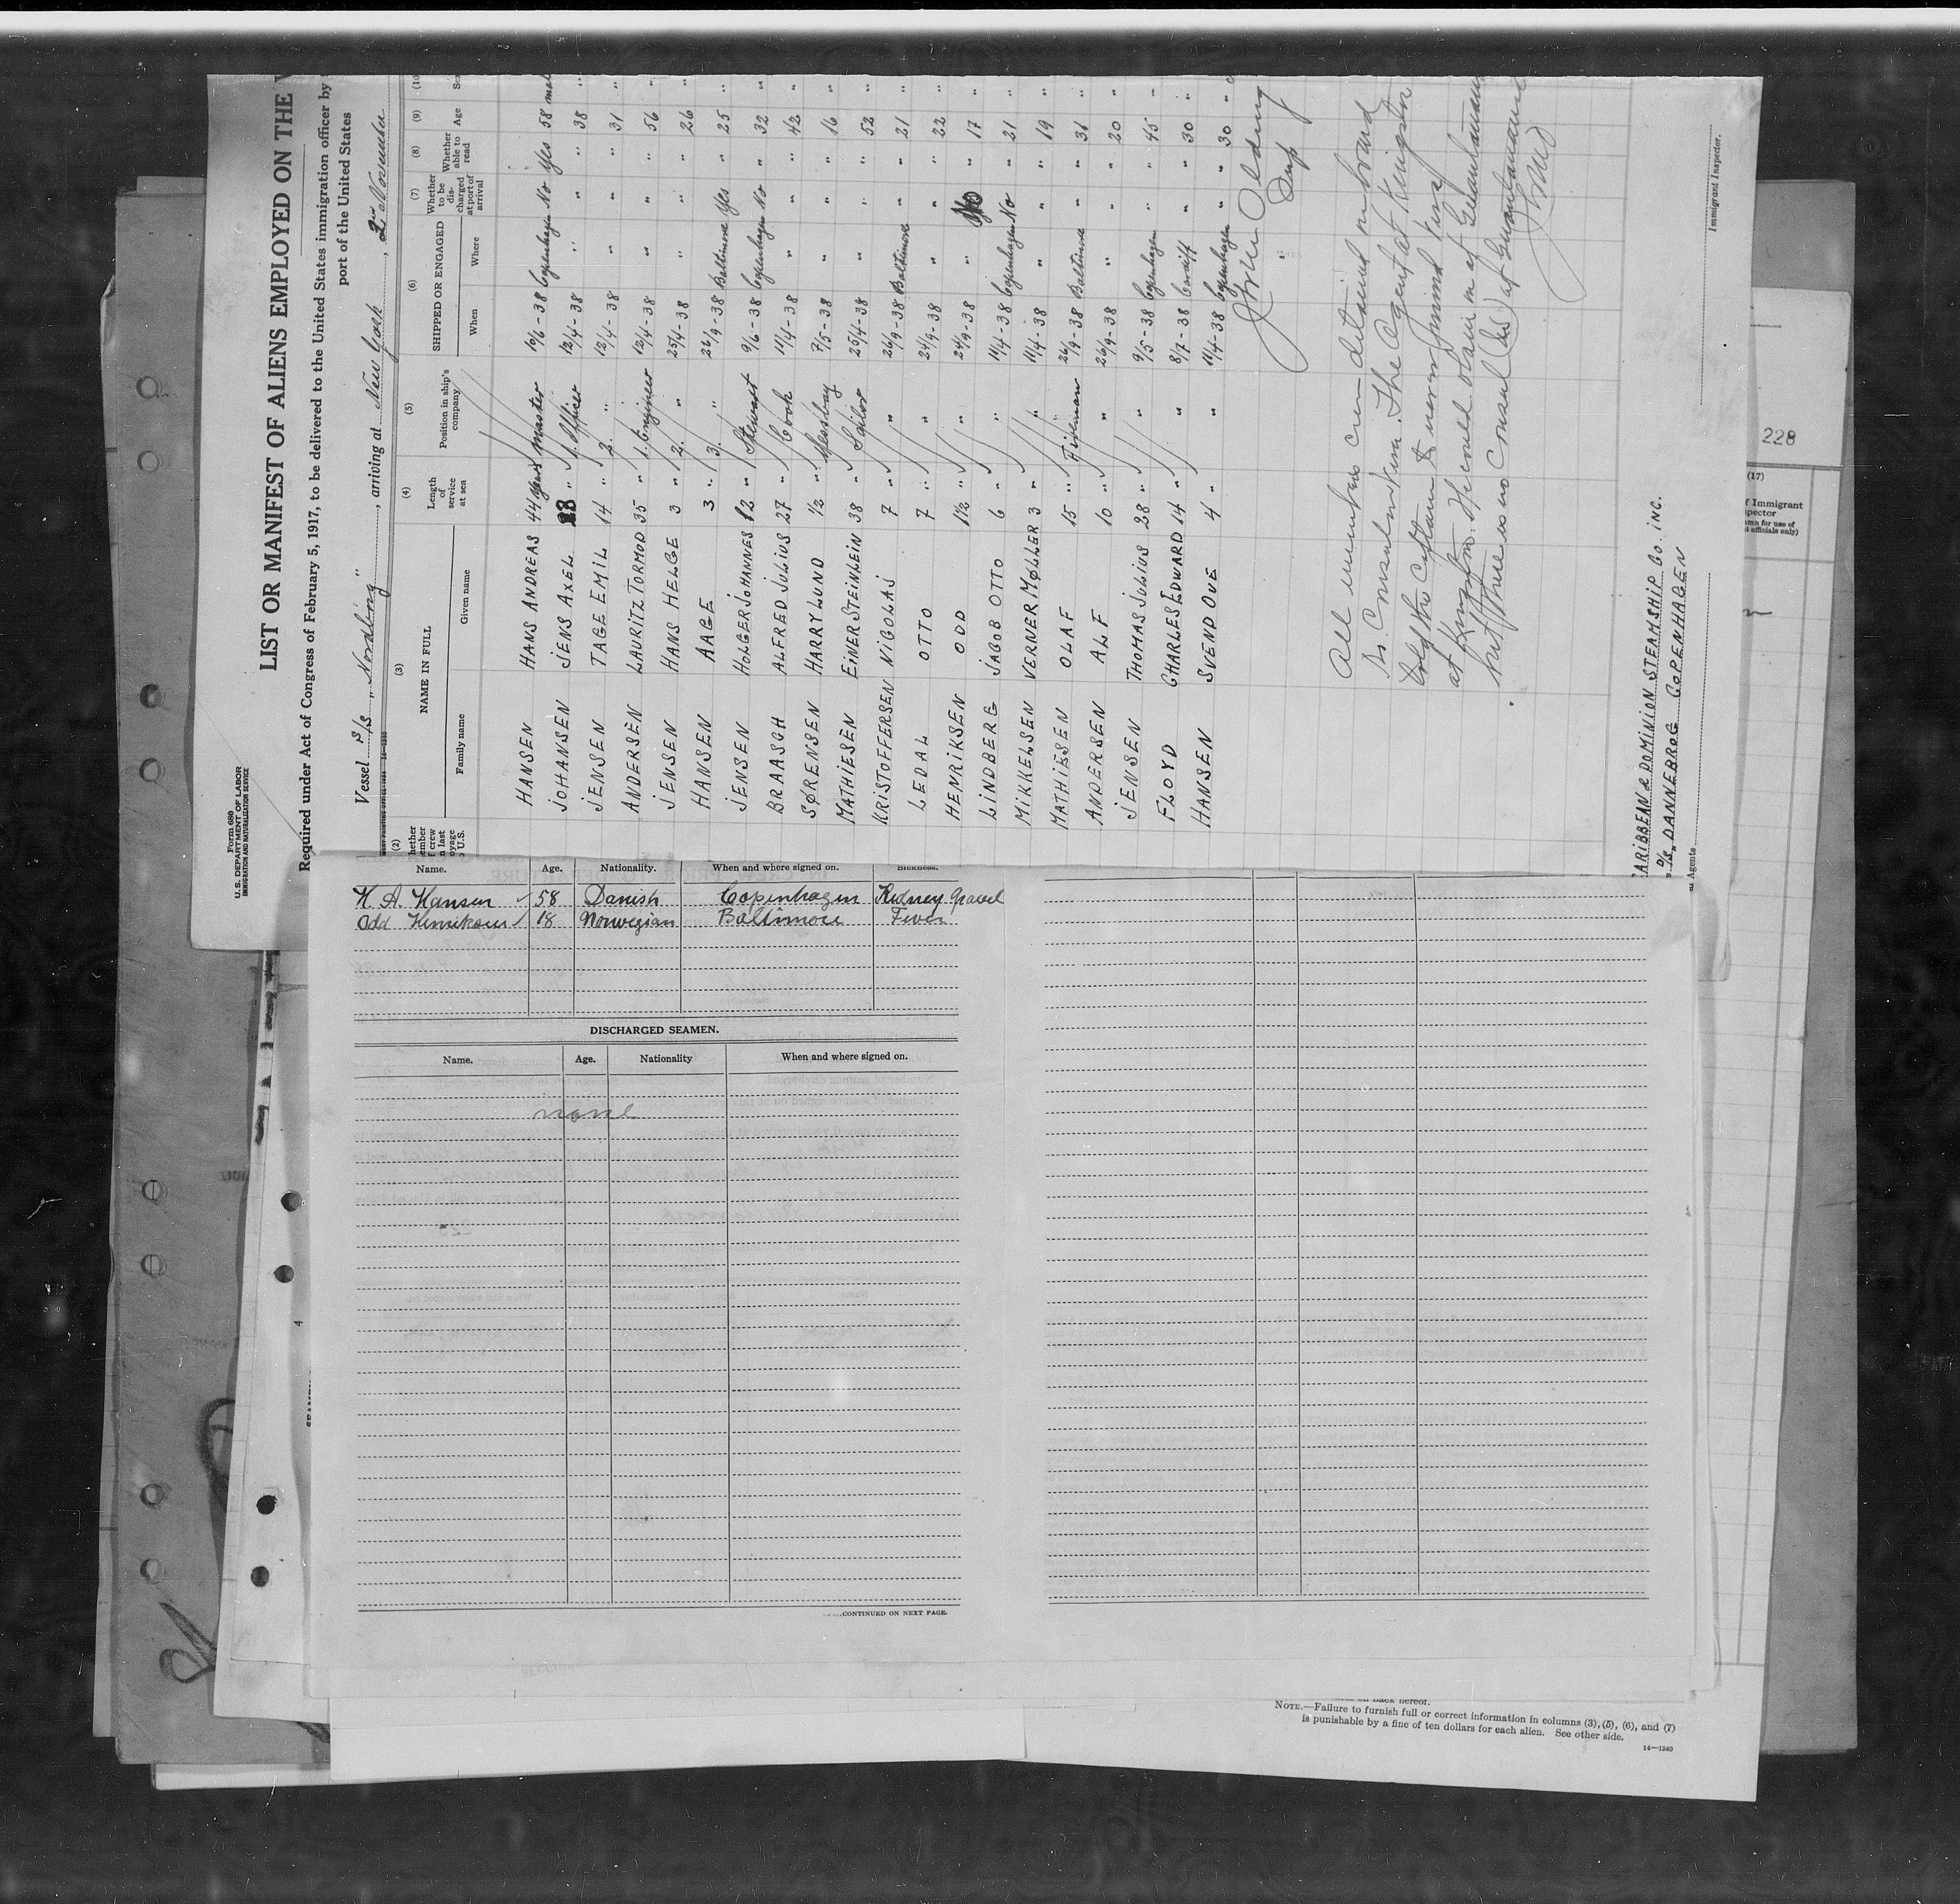 Form 680
U.S. DEPARTMENT OF LABOR
IMMIGRATION AND NATURALIZATION SERVICE
LIST OR MANIFEST OF ALIENS EMPLOYED ON THE
Required under Act of Congress of February 5, 1917, to be delivered to the United States immigration officer by
port of the United States
Vessel "Nordling", arriving at New York, 2nd November
(2) (3) (4) (5) (6) (7) (8) (9) (10
NAME IN FULL
Family name Given name
Length of service at sea
Position in ship's company
SHIPPED OR ENGAGED
When Where
Whether to be discharged at port of arrival
Whether able to read
Age
HANSEN HANS ANDREAS 44 years Master 16/6-38 Copenhagen No Yes 58
JOHANSEN JENS AXEL 23 " 1. Officer 12/4-38 " " " 38 "
JENSEN TAGE EMIL 14 " 2. " 12/4-38 " " " 31 "
ANDERSEN LAURITZ TORMOD 35 " 1. Engineer 12/4-38 " " " 56 "
JENSEN HANS HELGE 3 " 2. " 25/4-38 " " " 26 "
HANSEN AAGE 3 " 3. " 26/9-38 Baltimore Yes " 25 "
JENSEN HOLGER JOHANNES 12 " Stewart 9/6-38 Copenhagen No " 32 "
BRAASCH ALFRED JULIUS 27 " Cook 11/4-38 " " " 42 "
SØRENSEN HARRY LUND 1/2 " Messboy 7/5-38 " " " 16 "
MATHIESEN EINER STEINLEIN 38 " Sailor 25/4-38 " " " 52 "
KRISTOFFERSEN NICOLAJ 7 " " 26/9-38 Baltimore " " 21 "
LEDAL OTTO 7 " " 24/9-38 " " " 22 "
HENRIKSEN ODD 1 1/2 " " 24/9-38 " No " 17 "
LINDBERG JACOB OTTO 6 " " 11/4-38 Copenhagen No " 21 "
MIKKELSEN VERNER MØLLER 3 " " 11/4-38 " " " 19 "
MATHIESEN OLAF 15 " Fireman 26/9-38 Baltimore " " 31 "
ANDERSEN ALF 10 " " 26/9-38 " " " 20 "
JENSEN THOMAS JULIUS 28 " " 9/5-38 Copenhagen " " 45 "
FLOYD CHARLES EDWARD 14 " " 8/7-38 Cardiff " " 30 "
HANSEN SVEND OVE 4 " " 11/4-38 Copenhagen " " 30 "
John Oldring
Insp
All members crew detained on board
No Consular Visa. The Agent at Kingston
told the Captain
at Kingston. He could obtain in at Guantanamo
but there is no Consul (Am) at Guantanamo
Immigrant Inspector.
CARIBBEAN & DOMINION STEAMSHIP Co. INC.
D/S "DANNEBROG COPENHAGEN
Agents
228
(17)
Name. Age. Nationality. When and where signed on. Sickness.
H. A. Hansen 58 Danish Copenhagen Kidney gravel
Odd Henriksen 18 Norwegian Baltimore Fever
DISCHARGED SEAMEN.
Name. Age. Nationality When and where signed on.
none
CONTINUED ON NEXT PAGE.
4
NOTE.—Failure to furnish full or correct information in columns (3), (5), (6), and (7)
is punishable by a fine of ten dollars for each alien. See other side.
14—1240